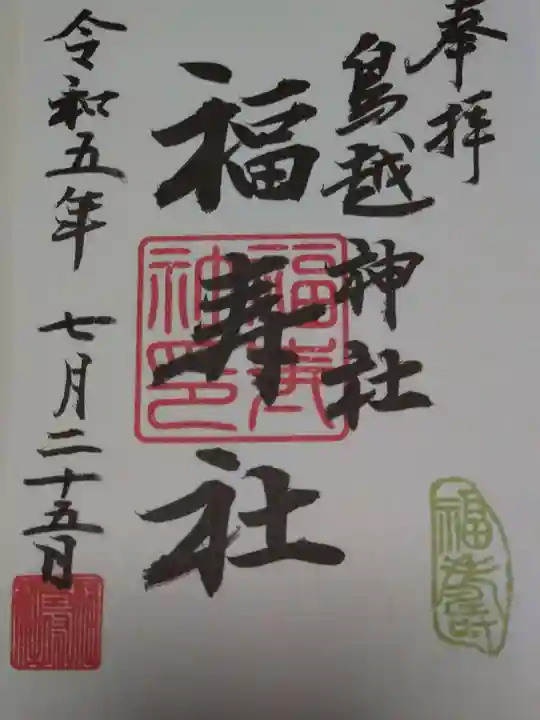 奉拝
鳥越神社
福寿社
令和五年 七月二十五日
福寿